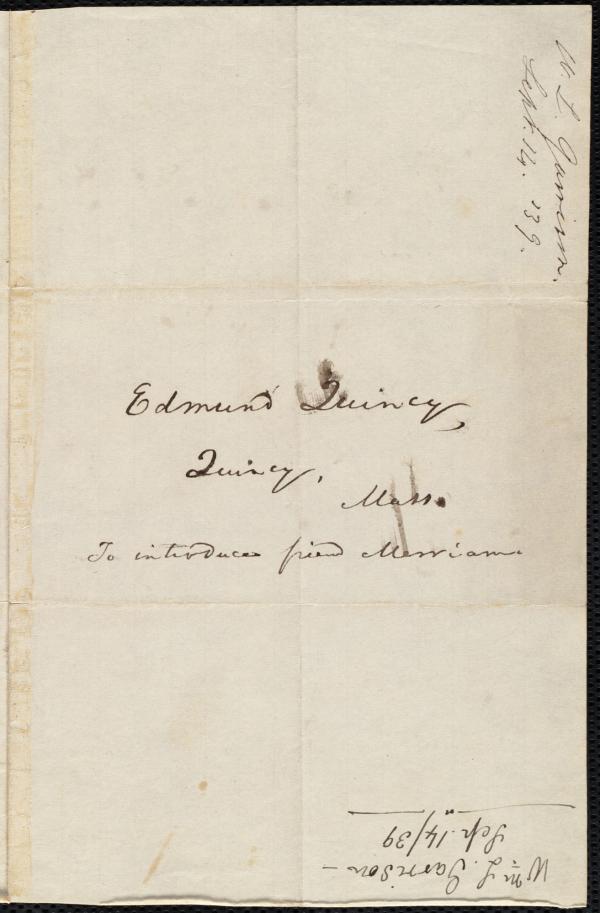 W. L. Garrison.
Sept. 14. '39.
Edmund Quincy,
Quincy,
Mass.
To introduce friend Merriam.
Wm. L. Garrison —
Sep. 14/39